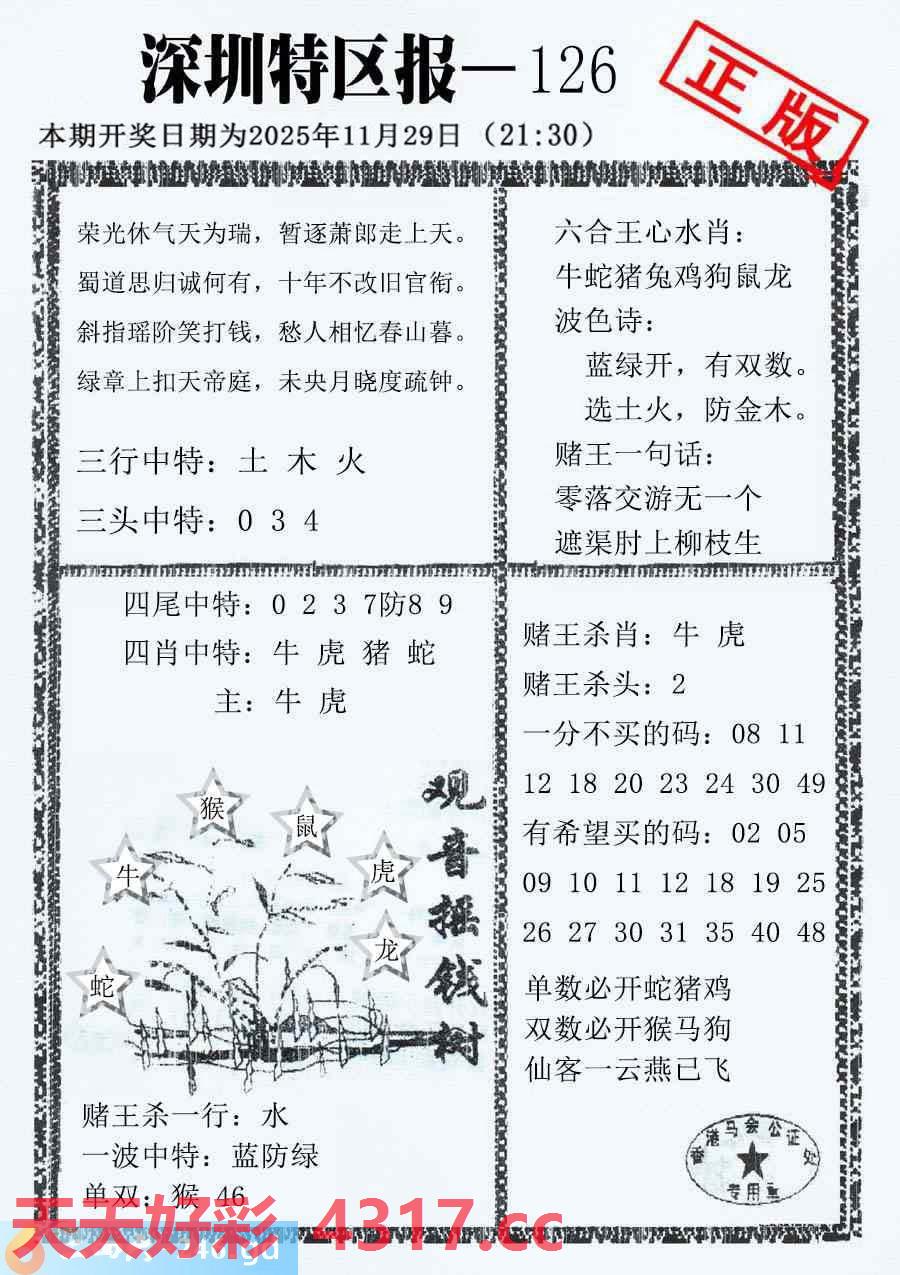 深圳特区报—126
正版
本期开奖日期为2025年11月29日（21:30）
荣光休气天为瑞，暂逐萧郎走上天。
蜀道思归诚何有，十年不改旧官衔。
斜指瑶阶笑打钱，愁人相忆春山暮。
绿章上扣天帝庭，未央月晓度疏钟。
三行中特：土 木 火
三头中特：0 3 4
六合王心水肖：
牛蛇猪兔鸡狗鼠龙
波色诗：
蓝绿开，有双数。
选土火，防金木。
赌王一句话：
零落交游无一个
遮渠肘上柳枝生
四尾中特：0 2 3 7防8 9
四肖中特：牛 虎 猪 蛇
主：牛 虎
观音摇钱树
猴
鼠
牛
虎
龙
蛇
赌王杀一行：水
一波中特：蓝防绿
单双：猴 46
赌王杀肖：牛 虎
赌王杀头：2
一分不买的码：08 11
12 18 20 23 24 30 49
有希望买的码：02 05
09 10 11 12 18 19 25
26 27 30 31 35 40 48
单数必开蛇猪鸡
双数必开猴马狗
仙客一云燕已飞
香港马会公证处
专用章
天天好彩 4317.cc